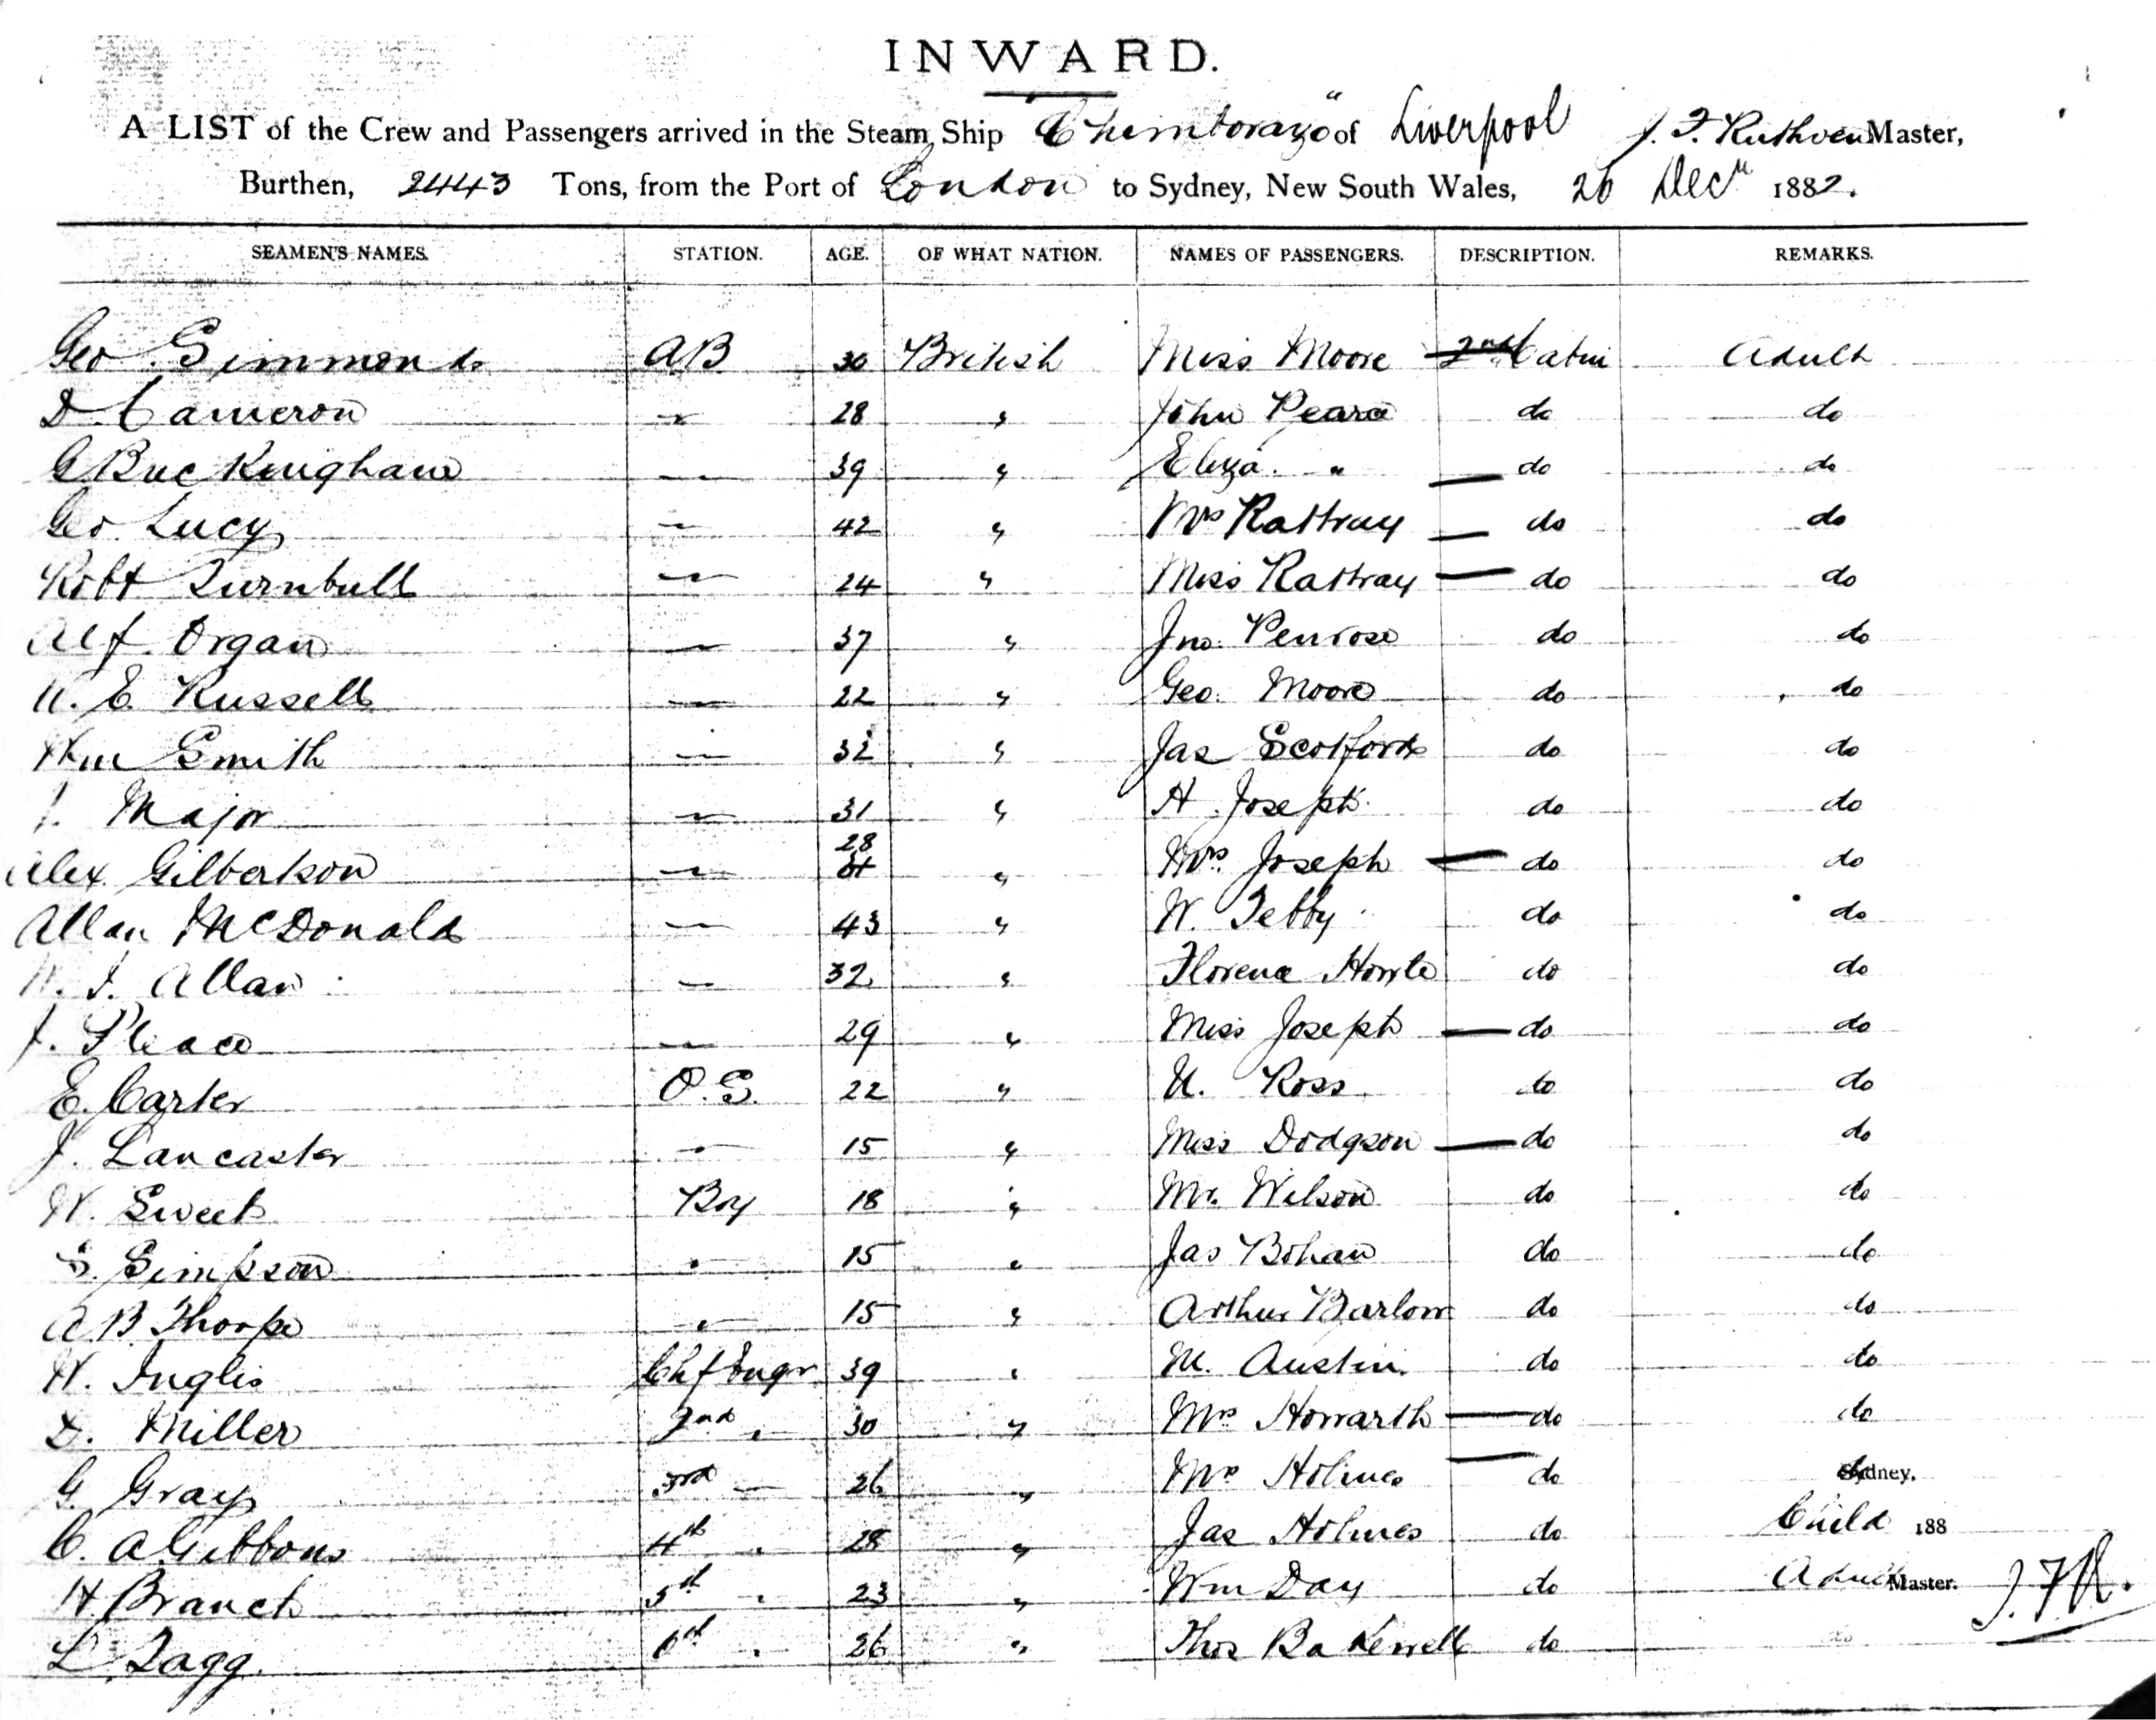 INWARD.
A LIST of the Crew and Passengers arrived in the Steam Ship "Chimborazo" of Liverpool J. F. Ruthven Master,
Burthen, 2443 Tons, from the Port of London to Sydney, New South Wales, 26 Decr 1882.
SEAMEN'S NAMES. STATION. AGE. OF WHAT NATION. NAMES OF PASSENGERS. DESCRIPTION. REMARKS.
Geo Simmonds AB 30 British Miss Moore 2nd Cabin Adult
D Cameron " 28 " John Pearce do do
G Buckingham " 39 " Eliza " do do
Geo Lucy " 42 " Mrs Rattray do do
Robt Turnbull " 24 " Miss Rattray do do
Alf. Organ " 37 " Jno. Penrose do do
E. Russell " 22 " Geo. Moore do do
Wm Smith " 32 " Jas Scotford do do
Major " 31 " H. Joseph do do
Alex Gilbertson " 28 " Mrs. Joseph do do
Allan McDonald " 43 " W. Tebby do do
Allan " 32 " Florence do do
J. Pleace " 29 " Miss Joseph do do
E. Carter O.S. 22 " Ross do do
J. Lancaster " 15 " Miss Dodgson do do
W. Sweet Boy 18 " Mr. Wilson do do
S. Simpson " 15 " Jas Bohan do do
A B Thorpe " 15 " Arthur Barlow do do
W. Inglis Chf Engr 39 " M. Austin do do
D. Miller 2nd " 30 " Mrs Howarth do do
G. Gray 3rd " 26 " Mrs Holmes do do Sydney,
C. A Gibbons 4th " 28 " Jas Holmes do Child 188
H. Branch 5th " 23 " Wm Day do Adult Master. J.F.R.
L. Tagg 6th " 26 " Thos Bakewell do do